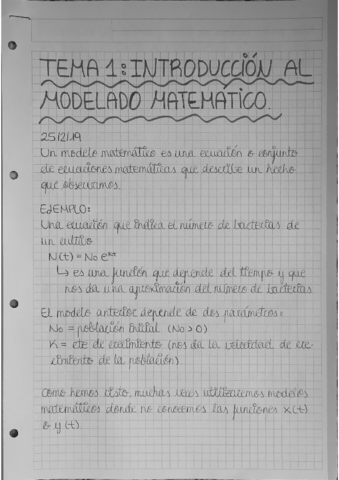 TEMA 1: INTRODUCCIÓN AL
MODELADO MATEMÁTICO.
25/2/19
Un modelo matemático es una ecuación o conjunto
de ecuaciones matemáticas que describe un hecho
que observamos.
EJEMPLO:
Una ecuación que indica el número de bacterias de
un cultivo
N(t) = No eᵏᵗ
↳ es una función que depende del tiempo y que
nos da una aproximación del número de bacterias
El modelo anterior depende de dos parámetros:
No = población inicial (No > 0)
K = cte de crecimiento (nos da la velocidad de cre-
cimiento de la población)
Como hemos visto, muchas veces utilizaremos modelos
matemáticos donde no conocemos las funciones x(t)
o y(t).